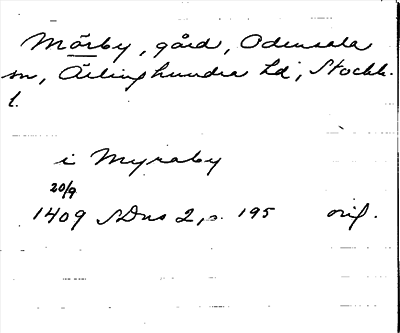 Mörby, gård, Odensala
sn, Ärlinghundra hd, Stockh.
l.
i Myraby
20/9
1409 SDns 2, s. 195 orig.